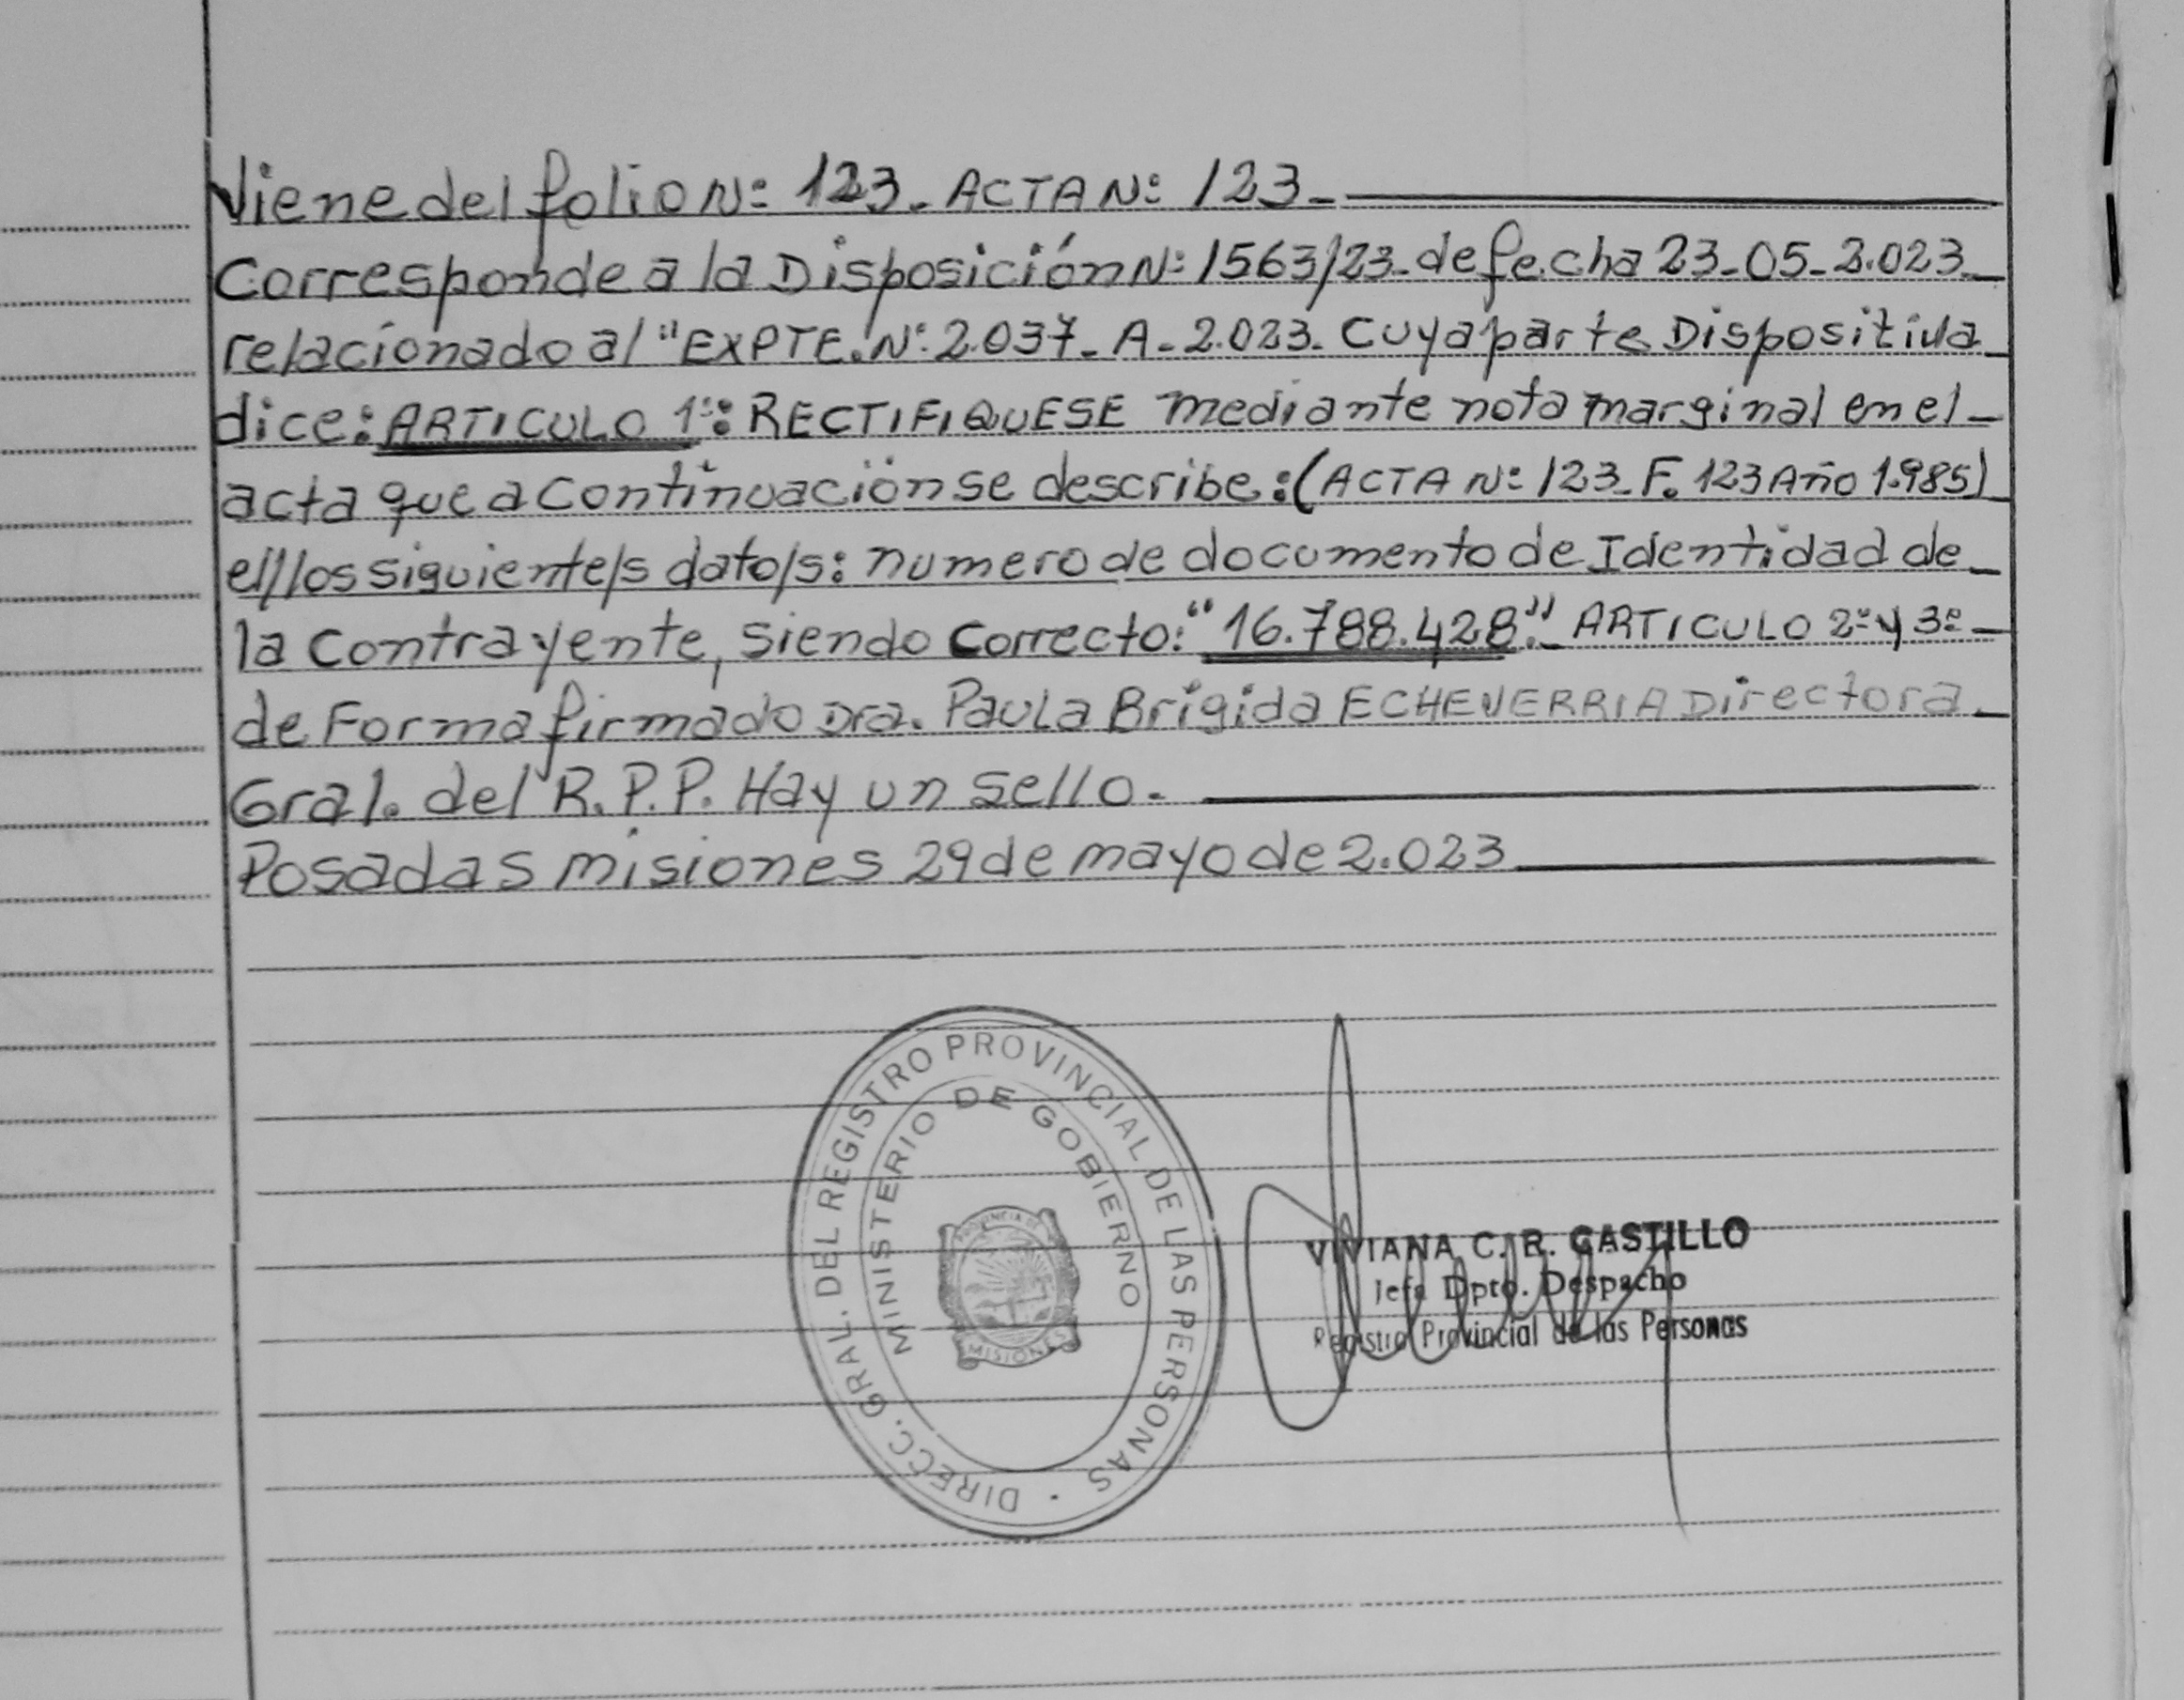 Viene del folio Nº 123. ACTA Nº 123.
Corresponde a la Disposición Nº 1563/23. de fecha 23-05-2.023.
relacionado al "EXPTE. Nº 2.037- A- 2.023. Cuya parte Dispositiva
dice: ARTICULO 1º: RECTIFIQUESE mediante nota marginal en el
acta que a Continuación se describe: (ACTA Nº 123. F. 123 Año 1.985)
el/los siguiente/s dato/s: numero de documento de Identidad de
la Contrayente, siendo Correcto: "16.788.428". ARTICULO 2º y 3º
de Forma firmado Dra. Paula Brigida ECHEVERRIA Directora
Gral. del R.P.P. Hay un sello.
Posadas misiones 29 de mayo de 2.023
DIRECC. GRAL. DEL REGISTRO PROVINCIAL DE LAS PERSONAS
MINISTERIO DE GOBIERNO
PROVINCIA DE
MISIONES
VIVIANA C. R. CASTILLO
Jefa Dpto. Despacho
Registro Provincial de las Personas